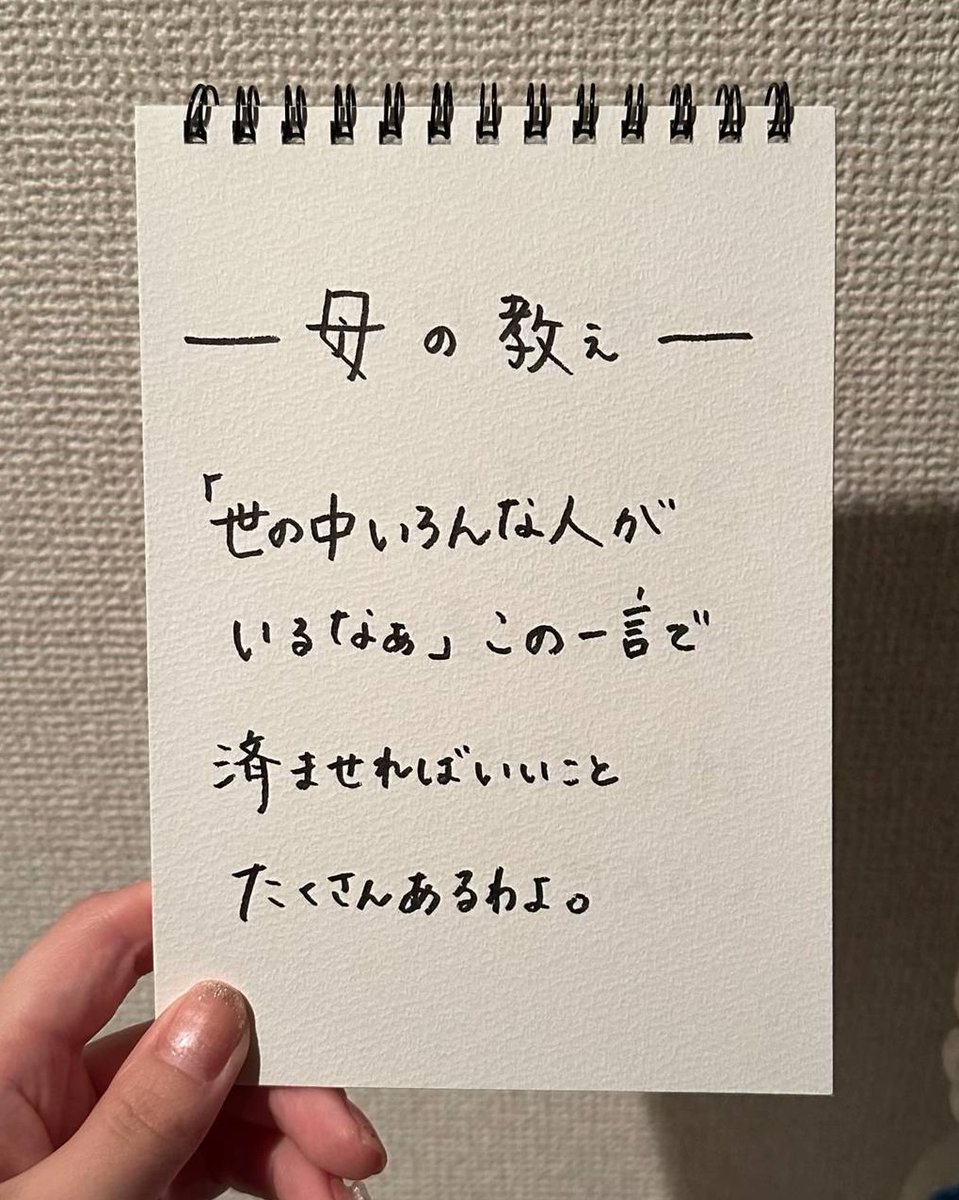 ― 母の教え ―
「世の中いろんな人が
いるなぁ」この一言で
済ませればいいこと
たくさんあるわよ。